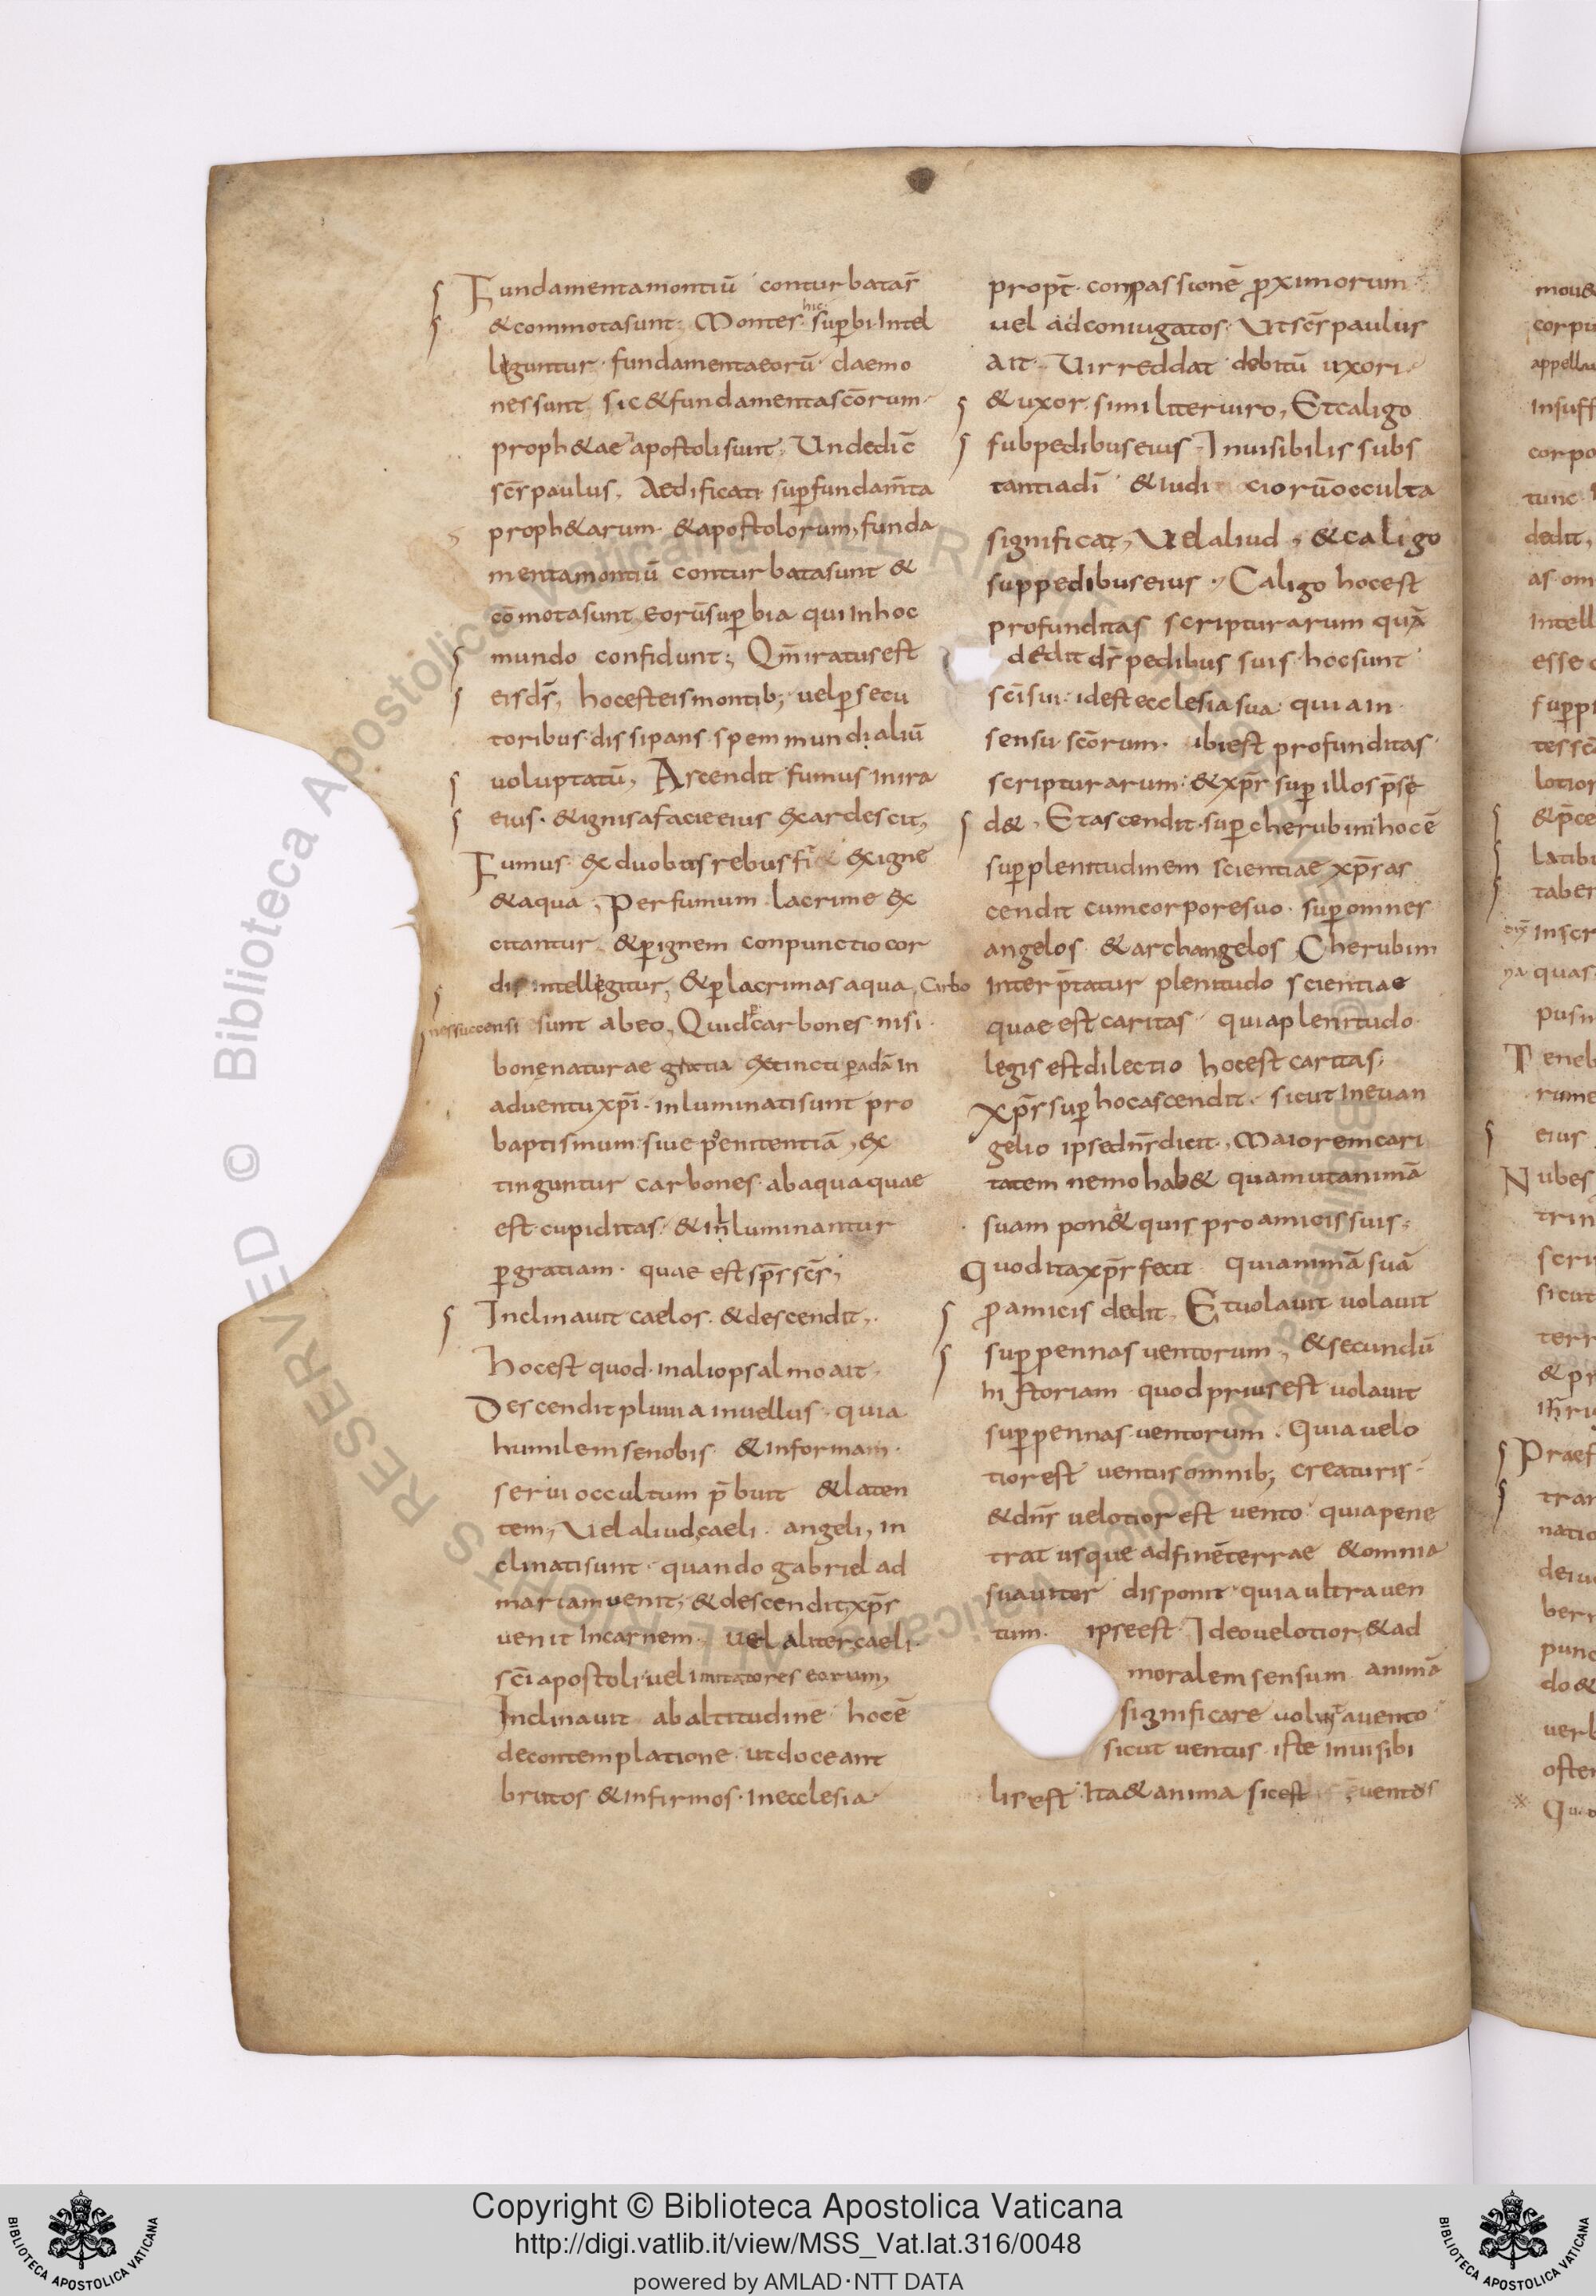 Fundamentamontiū conturbatas̄
&commotasunt; Montes hic· sup̄bi·Intel
leguntur· fundamentaeorū· daemo
nessunt, sic&fundamentascōrum·
proph&ae apostolisunt· Undedic̄
scs̄paulus, Aedificati sup̄fundam̄ta
proph&arum· &apostolorum, funda
mentamontiū conturbatasunt &
cōmotasunt, eorūsup̄bia quiinhoc
mundo confidunt; Qm̄iratusest
eisds̄, hocesteismontib; uelp̄secu
toribus·dissipans·spemmundialiū
uoluptatū, Ascendit fumus inira
eius· &ignisafacieeius exardescit,
Fumus· exduobusrebusfi exigne
&aqua, Perfumum lacrime ex
citantur &p̄ignem conpunctiocor
dis intellegitur, &p̄lacrimasaqua, Carbo
nessuccensi sunt abeo, Quid carbones·nisi·
bonenaturae gratia extincti p̄adā in
aduentuxp̄i·inluminatisunt pro
baptismum·siue penitentiā, ex
tinguntur carbones·abaquaquae
est·cupiditas· &inluminantur
p̄gratiam· quae estsp̄sscs̄,
Inclinauit caelos· &descendit,·
hocest quod·inaliopsalmoait·
Descenditpluuia inuellus· quia
humilemsenobis· &informam·
serui occultum p̄buit &laten
tem, Uelaliud,caeli· angeli, in
clinatisunt· quando gabriel ad
mariamuenit, &descenditxp̄s
uenit Incarnem· uel aliter,caeli·
scīapostoli·uelimitatores eorum,
Inclinauit abaltitudine hocē
decontemplatione·utdoceant
brutos &infirmos·inecclesia·
propt̄·conpassionē p̄ximorum
uel adconiugatos· Utscs̄paulus
ait· Uirreddat debitū uxori·
&uxor·similiteruiro, Etcaligo
subpedibuseius· Inuisibilissubs
tantiadī &iudi ciorūocculta
significat, Uelaliud, &caligo
suppedibuseius· Caligo hocest
profunditas scripturarum quā
dedit ds̄pedibus suis·hocsunt
scīsui·idestecclesiasua· quiain
sensu scōrum· ibiest profunditas
scripturarum· &xp̄s sup̄illosp̄se
d&, Etascendit·sup̄cherubin·hocē
sup̄plenitudinem scientiae xp̄sas
cendit cumcorporesuo· sup̄omnes
angelos &archangelos Cherubim
interp̄tatur plenitudo scientiae
quae est caritas quiaplenitudo
legis estdilectio hocest caritas,
Xp̄ssup̄hocascendit· sicut ineuan
gelio ipsedns̄dicit, Maioremcari
tatem nemohab& quamutanimā
suam pon& quis proamicissuis·
Quoditaxp̄sfecit quianimā suā
p̄amicis dedit, Etuolauit uolauit
sup̄pennas uentorum, &secundū
historiam quodpriusest uolauit
sup̄pennas·uentorum· Quiauelo
tiorest uentusomnib; creaturis·
&dns̄ uelotiorest uento quiapene
trat usque adfinēterrae &omnia
suauiter disponit·quiaultrauen
tum· ipseest· Ideouelotior,&ad
moralemsensum animā
significare auento
sicut uentus·iste inuisibi
lisest·Ita&anima sicest uentos
Copyright © Biblioteca Apostolica Vaticana
http://digi.vatlib.it/view/MSS_Vat.lat.316/0048
powered by AMLAD·NTT DATA